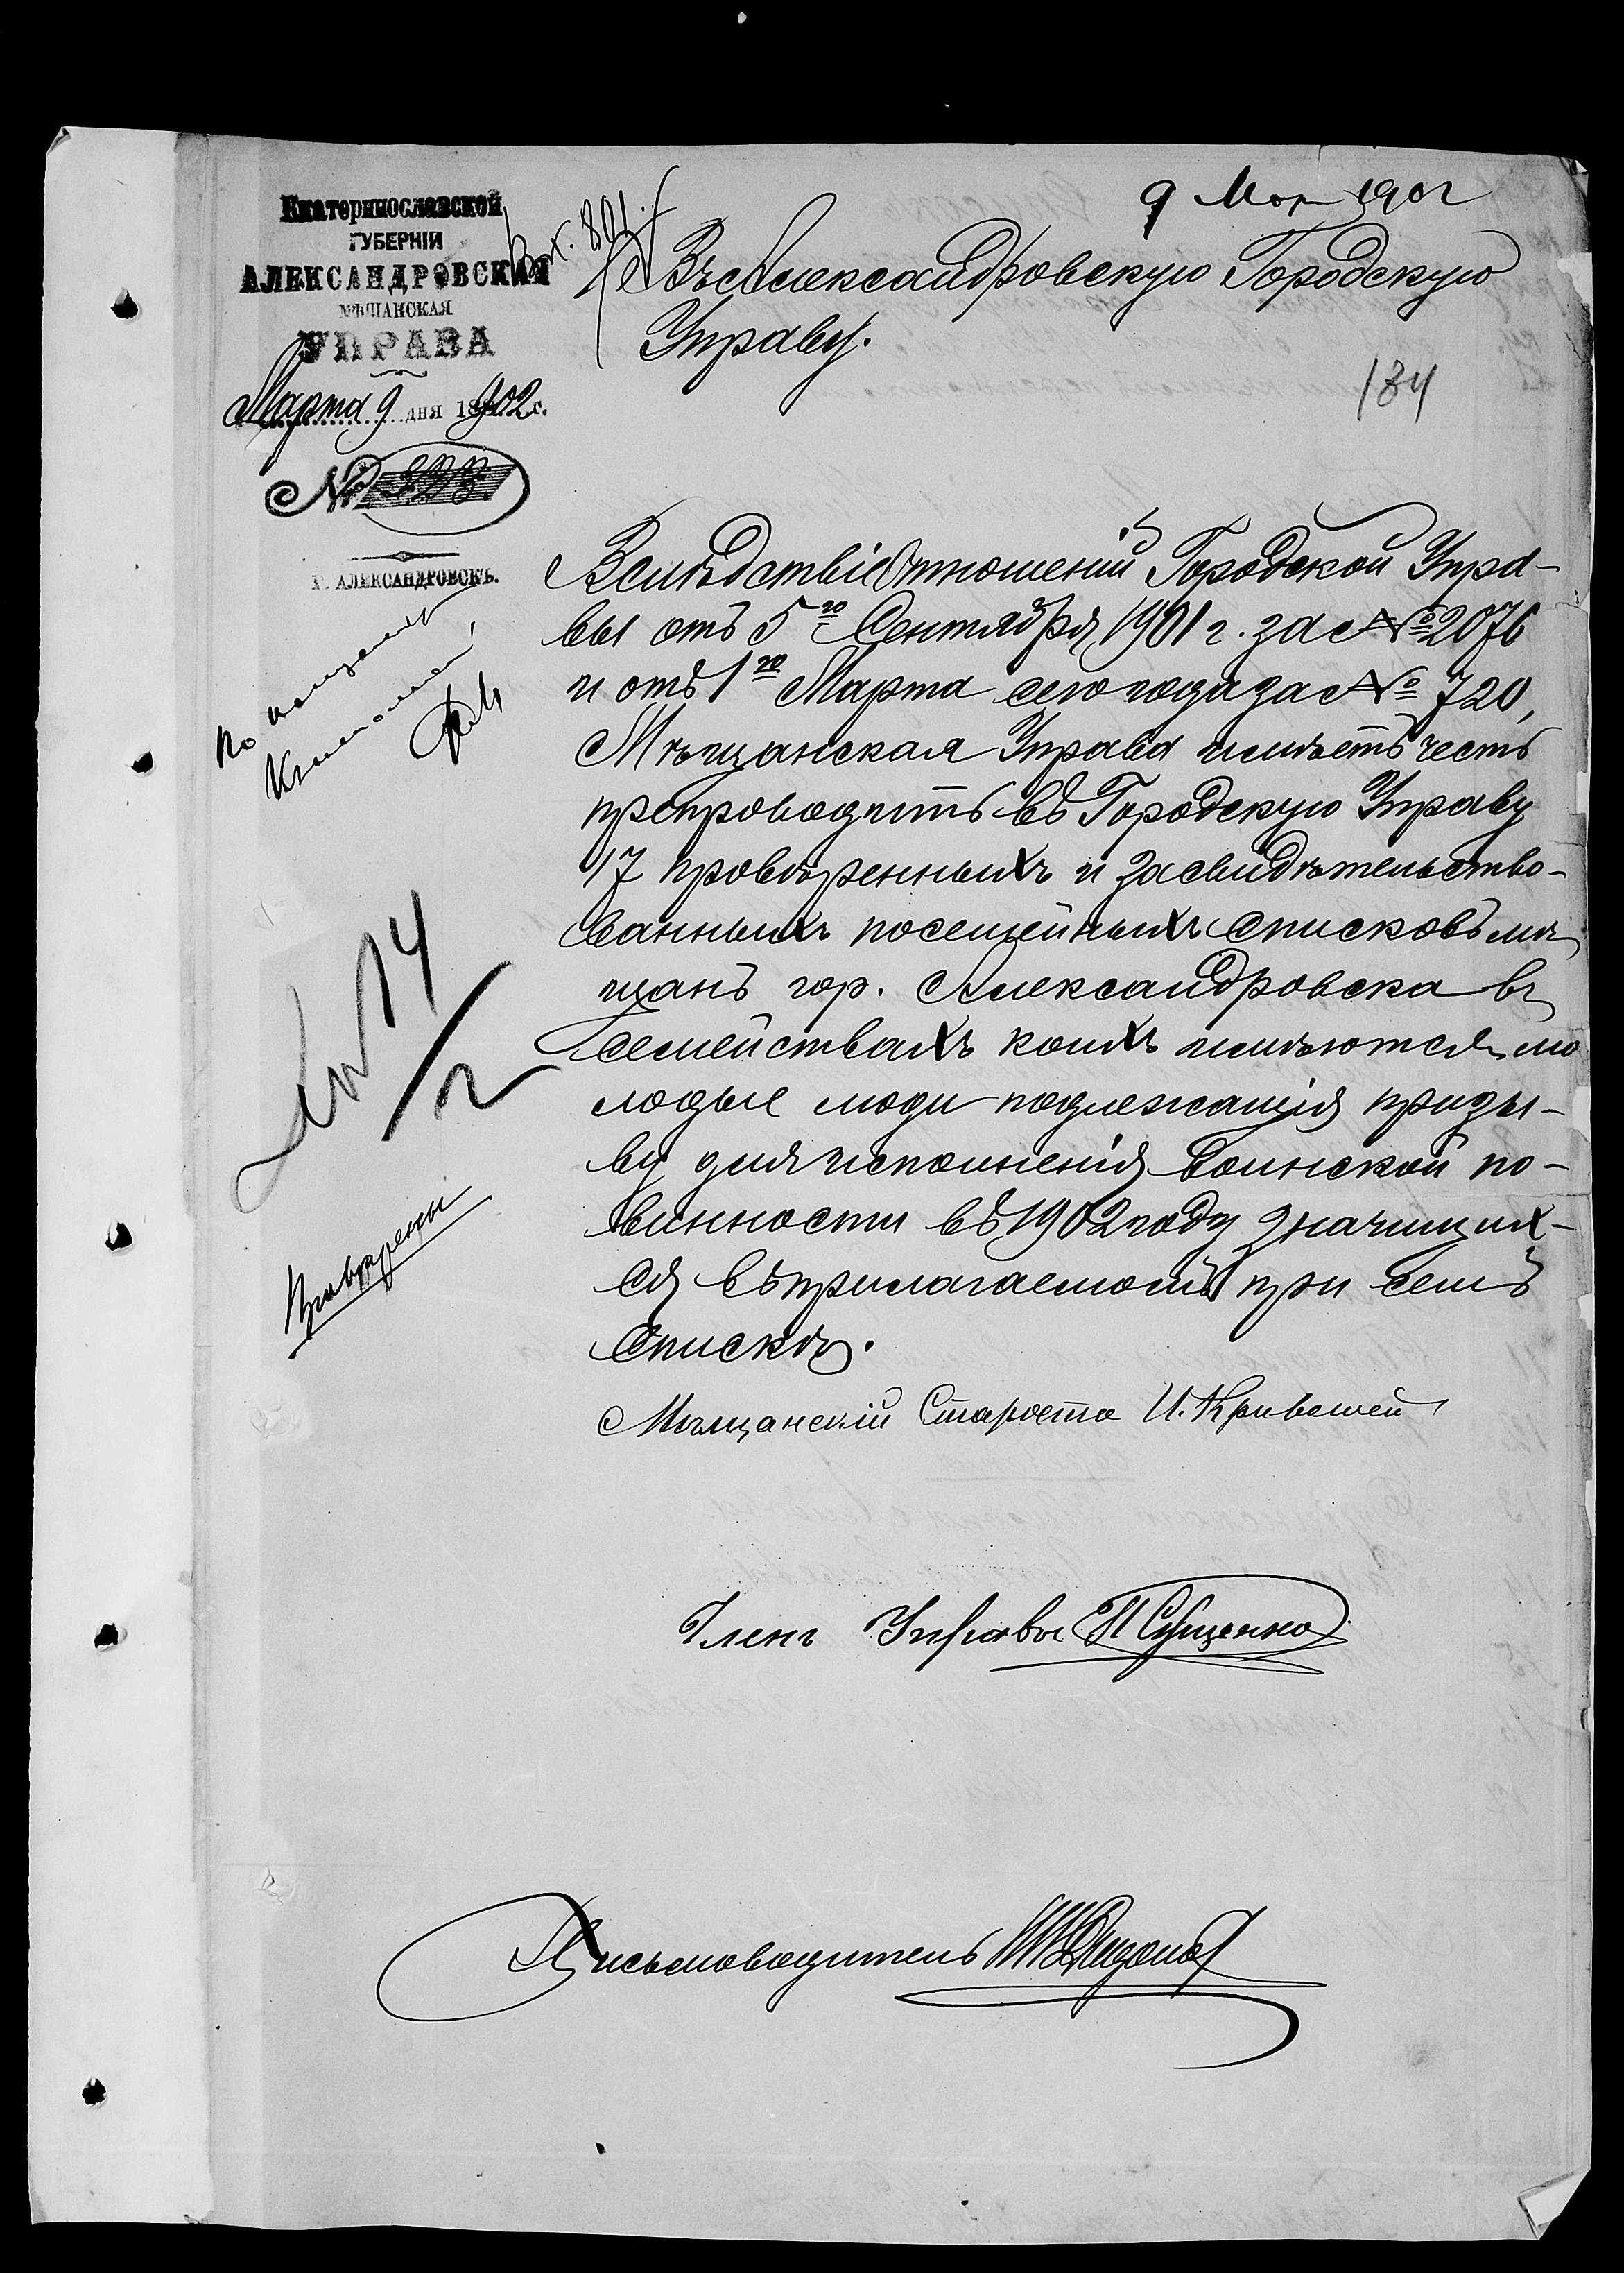 9 Мар 1902
Екатеринославской
ГУБЕРНІИ
АЛЕКСАНДРОВСКАЯ
МѢЩАНСКАЯ
УПРАВА
Марта 9 дня 1902 г.
№
Г. АЛЕКСАНДРОВСКЪ.
Вх. 801.
Въ Александровскую Городскую
Управу.
184
Вслѣдствіе отношеній Городской Упра-
вы отъ 5го Сентября 1901 г. за № 2076
и отъ 1го Марта сего года за № 720,
Мѣщанская Управа имѣетъ честь
препроводить въ Городскую Управу
17 провѣренныхъ и засвидѣтельство-
ванныхъ посемейныхъ списковъ мѣ
щанъ гор. Александровска въ
семействахъ коихъ имѣются мо
лодые люди подлежащія призы-
ву для исполненія воинской по-
винности въ 1902 году значущих-
ся въ прилагаемомъ при семъ
спискѣ.
Мѣщанскій Староста И. Кривошей
Членъ Управы П Сущенко
Письмоводитель
14
2